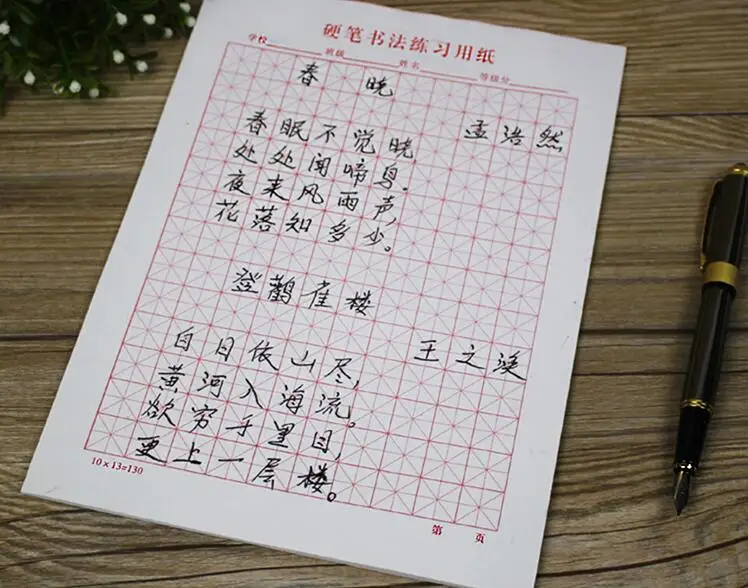 硬笔书法练习用纸
学校 班级 姓名 等级分
春晓
孟浩然
春眠不觉晓,
处处闻啼鸟.
夜来风雨声,
花落知多少。
登鹳雀楼
王之涣
白日依山尽,
黄河入海流。
欲穷千里目,
更上一层楼。
10×13=130
第 页